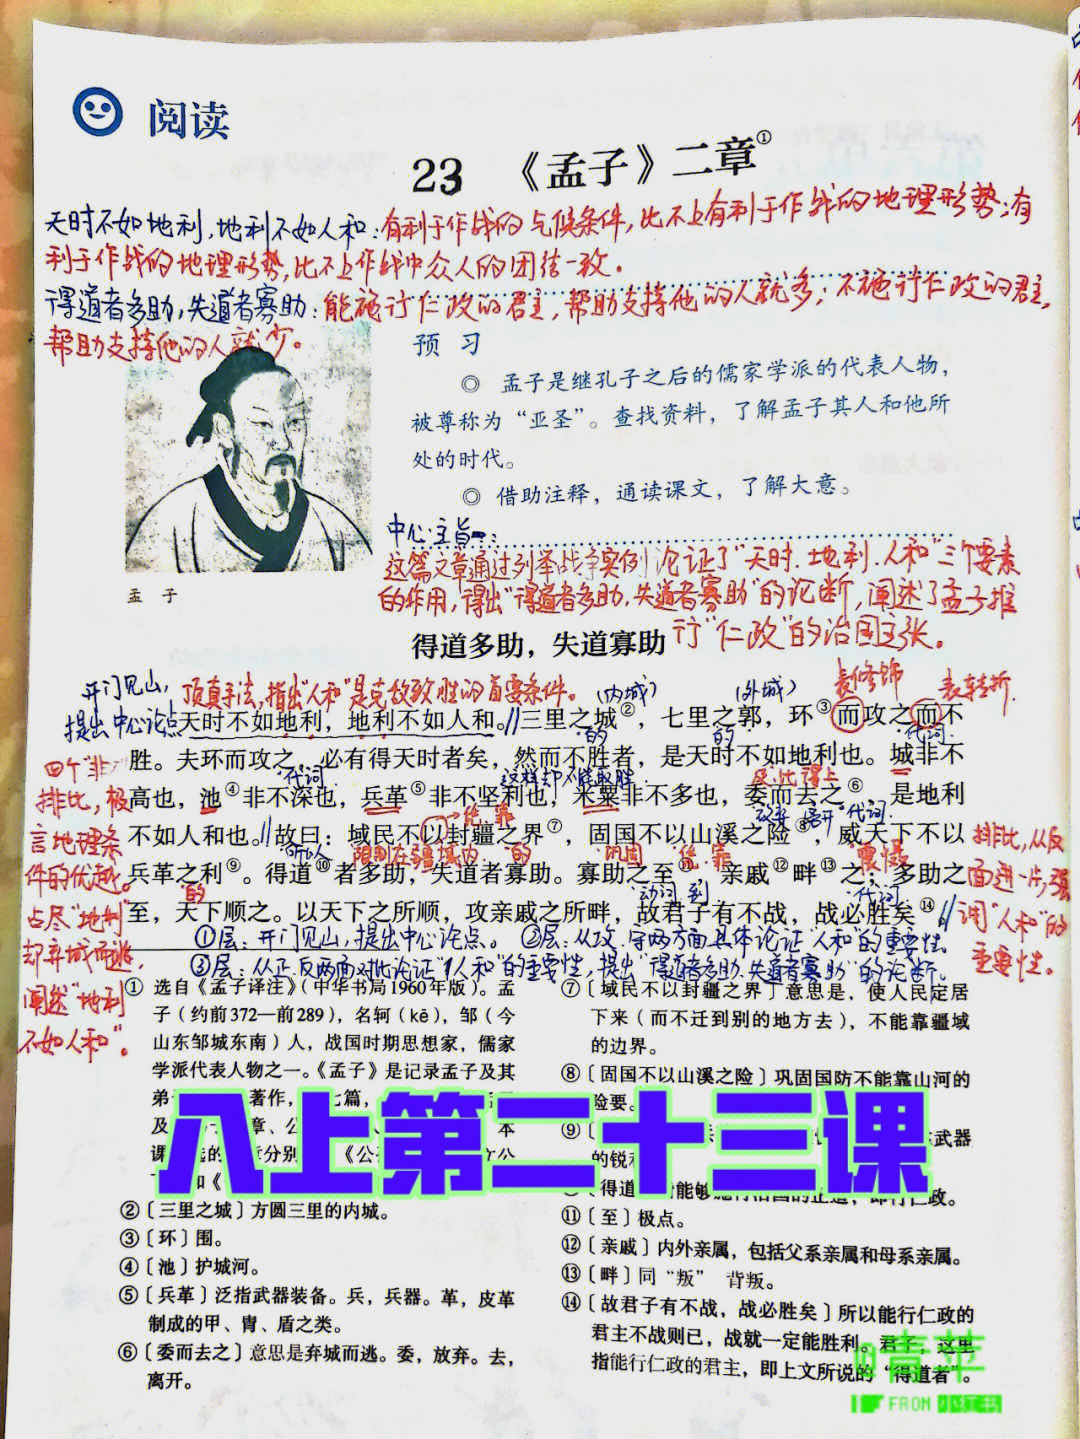 阅读
23 《孟子》二章①
天时不如地利,地利不如人和:有利于作战的气候条件,比不上有利于作战的地理形势;有
利于作战的地理形势,比不上作战中众人的团结一致。
得道者多助,失道者寡助:能施行仁政的君主,帮助支持他的人就多;不施行仁政的君主,
帮助支持他的人就少。
预 习
◎ 孟子是继孔子之后的儒家学派的代表人物,
被尊称为“亚圣”。查找资料,了解孟子其人和他所
处的时代。
◎ 借助注释,通读课文,了解大意。
孟 子
中心主旨:
这篇文章通过列举战争实例论证了“天时、地利、人和”三个要素
的作用,得出“得道者多助,失道者寡助”的论断,阐述了孟子推
行“仁政”的治国主张。
得道多助,失道寡助
开门见山,
提出中心论点
顶真手法,指出“人和”是克敌致胜的首要条件。
(内城)
(外城)
表修饰
表转折
天时不如地利,地利不如人和。三里之城②,七里之郭,环③而攻之而不
的
的
代词
胜。夫环而攻之,必有得天时者矣,然而不胜者,是天时不如地利也。城非不
代词
这样却不能取胜
高也,池④非不深也,兵革⑤非不坚利也,米粟非不多也,委而去之⑥,是地利
放弃
离开
代词
不如人和也。故曰:域民不以封疆之界⑦,固国不以山溪之险⑧,威天下不以
依、靠
所以
限制在疆域内
的
巩固
依、靠
震慑
兵革之利⑨。得道⑩者多助,失道者寡助。寡助之至⑪,亲戚⑫畔⑬之;多助之
的
动词 到
代词
至,天下顺之。以天下之所顺,攻亲戚之所畔,故君子有不战,战必胜矣⑭。
四个“非”
排比,极
言地理条
件的优越。
占尽“地利”
却弃城而逃,
阐然“地利
不如人和”。
排比,从反
面进一步强
调“人和”的
重要性。
①层:开门见山,提出中心论点。②层:从攻、守两方面具体论证“人和”的重要性。
③层:从正反两面对比论证“人和”的重要性,提出“得道者多助、失道者寡助”的论断。
① 选自《孟子译注》(中华书局1960年版)。孟
子(约前372—前289),名轲(kē),邹(今
山东邹城东南)人,战国时期思想家,儒家
学派代表人物之一。《孟子》是记录孟子及其
②〔三里之城〕方圆三里的内城。
③〔环〕围。
④〔池〕护城河。
⑤〔兵革〕泛指武器装备。兵,兵器。革,皮革
制成的甲、胄、盾之类。
⑥〔委而去之〕意思是弃城而逃。委,放弃。去,
离开。
⑦〔域民不以封疆之界〕意思是,使人民定居
下来(而不迁到别的地方去),不能靠疆域
的边界。
⑧〔固国不以山溪之险〕巩固国防不能靠山河的
险要。
⑪〔至〕极点。
⑫〔亲戚〕内外亲属,包括父系亲属和母系亲属。
⑬〔畔〕同“叛”背叛。
⑭〔故君子有不战,战必胜矣〕所以能行仁政的
君主不战则已,战就一定能胜利。君子,这里
指能行仁政的君主,即上文所说的“得道者”。
八上第二十三课
@青苹
FROM 小红书